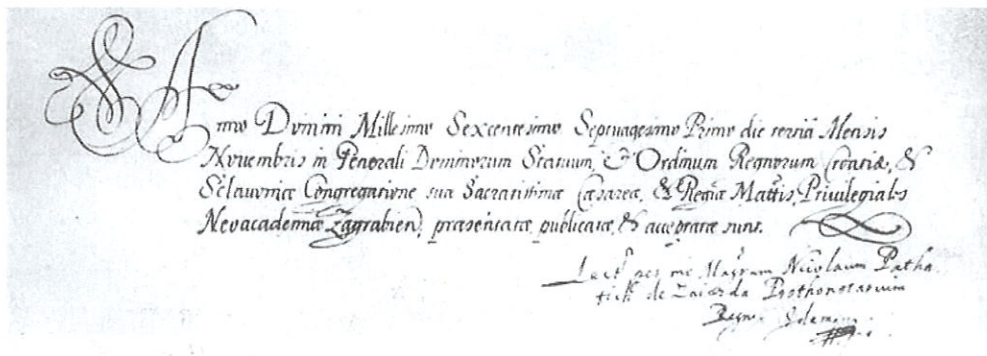 Anno Domini Millesimo Sexcentesimo Septuagesimo Primo die tertiâ Mensis
Novembris in Generali Dominorum Statuum, & Ordinum Regnorum Croatiæ, &
Sclavoniæ Congregatione suæ Sacratissimæ Cæsareæ, & Regiæ Mattis, Privilegiales
Neoacademiæ Zagrabien, præsentatæ publicatæ, & acceptatæ sunt.
Lectæ per me Magrum Nicolaum Patha
tich de Zaiezda Prothonotarium
Regni